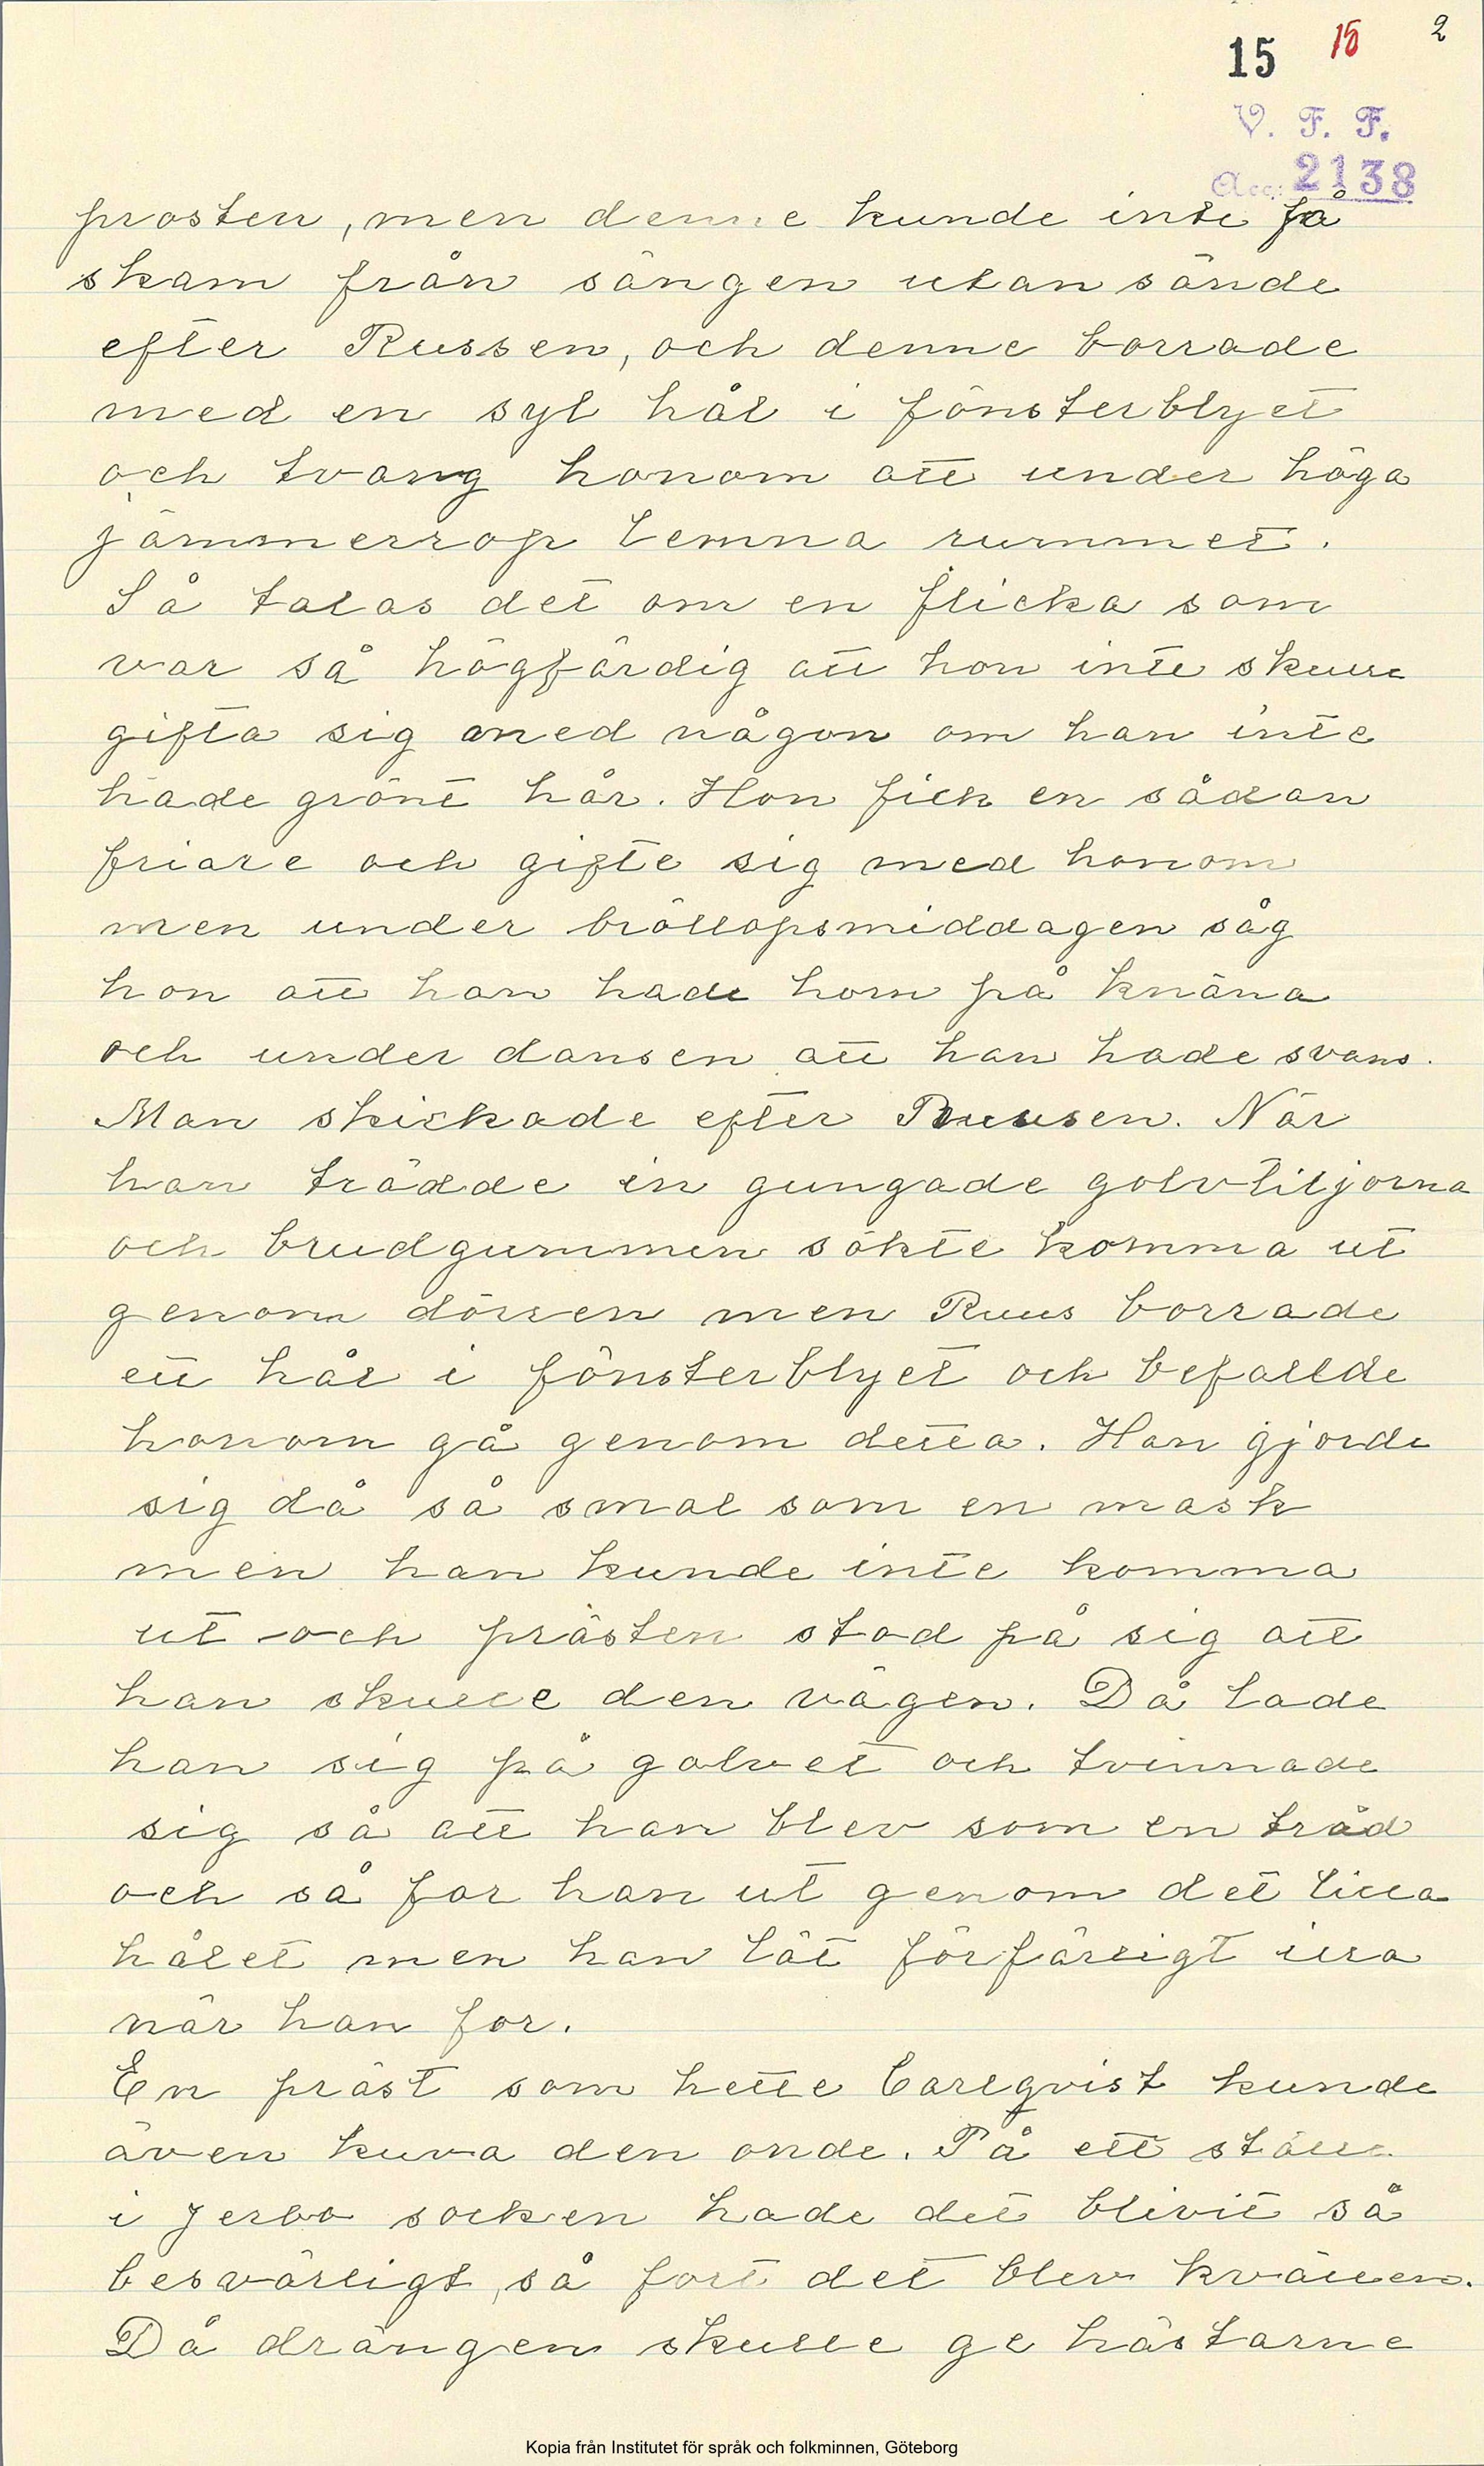 15 15 2
V. F. F.
Acc: 2138
prosten, men denne kunde inte få
skam från sängen utan sände
efter Russen, och denne borrade
med en syl hål i fönsterblyet
och tvang honom att under höga
jämmerrop lemna rummet.
Så talas det om en flicka som
var så högfärdig att hon inte skulle
gifta sig med någon om han inte
hade grönt hår. Hon fick en sådan
friare och gifte sig med honom
men under bröllopsmiddagen såg
hon att han hade horn på knäna
och under dansen att han hade svans.
Man skickade efter Ruusen. När
han trädde in gungade golvtiljorna
och brudgummen sökte komma ut
genom dörren men Ruus borrade
ett hål i fönsterblyet och befallde
honom gå genom detta. Han gjorde
sig då så smal som en mask
men han kunde inte komma
ut och prästen stod på sig att
han skulle den vägen. Då lade
han sig på golvet och tvinnade
sig så att han blev som en tråd
och så for han ut genom det lilla
hålet men han lät förfärligt illa
när han for.
En präst som hette Carlqvist kunde
även kuva den onde. På ett ställe
i Jerbo socken hade det blivit så
besvärligt, så fort det blev kvällen.
Då drängen skulle ge hästarne
Kopia från Institutet för språk och folkminnen, Göteborg